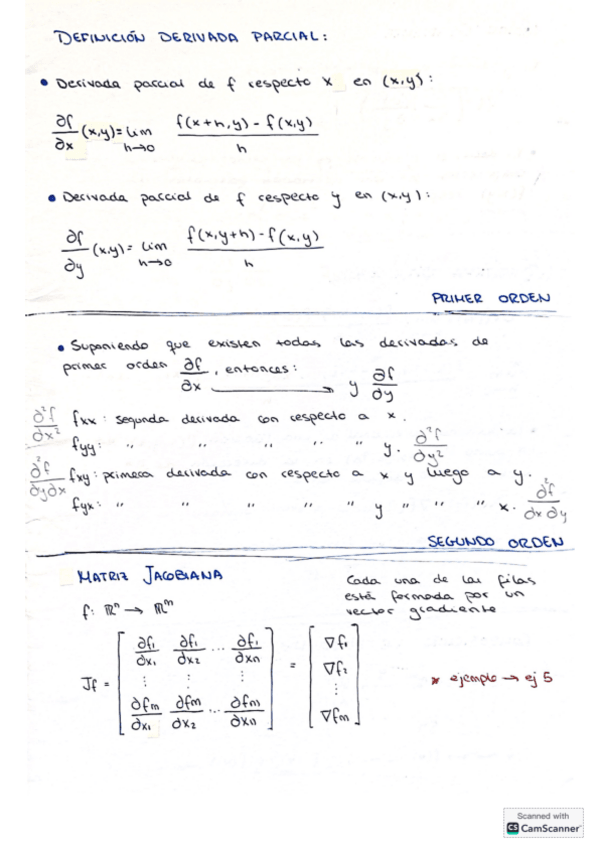 DEFINICIÓN DERIVADA PARCIAL:
• Derivada parcial de f respecto x en (x,y):
∂f/∂x (x,y) = lim h→0 f(x+h,y) - f(x,y) / h
• Derivada parcial de f respecto y en (x,y):
∂f/∂y (x,y) = lim h→0 f(x,y+h) - f(x,y) / h
PRIMER ORDEN
• Suponiendo que existen todas las derivadas de
primer orden ∂f/∂x, entonces: → y ∂f/∂y
∂²f/∂x² fxx: segunda derivada con respecto a x.
fyy: " " " " " y. ∂²f/∂y²
∂²f/∂y∂x fxy: primera derivada con respecto a x y luego a y.
fyx: " " " " " y " " " x. ∂²f/∂x∂y
SEGUNDO ORDEN
MATRIZ JACOBIANA
Cada una de las filas
está formada por un
vector gradiente
f: ℝⁿ → ℝᵐ
Jf = [ ∂f₁/∂x₁ ∂f₁/∂x₂ ... ∂f₁/∂xn
⋮ ⋮ ⋮
∂fm/∂x₁ ∂fm/∂x₂ ... ∂fm/∂xn ] = [ ∇f₁
∇f₂
⋮
∇fm ]
* ejemplo → ej 5
Scanned with
CS CamScanner